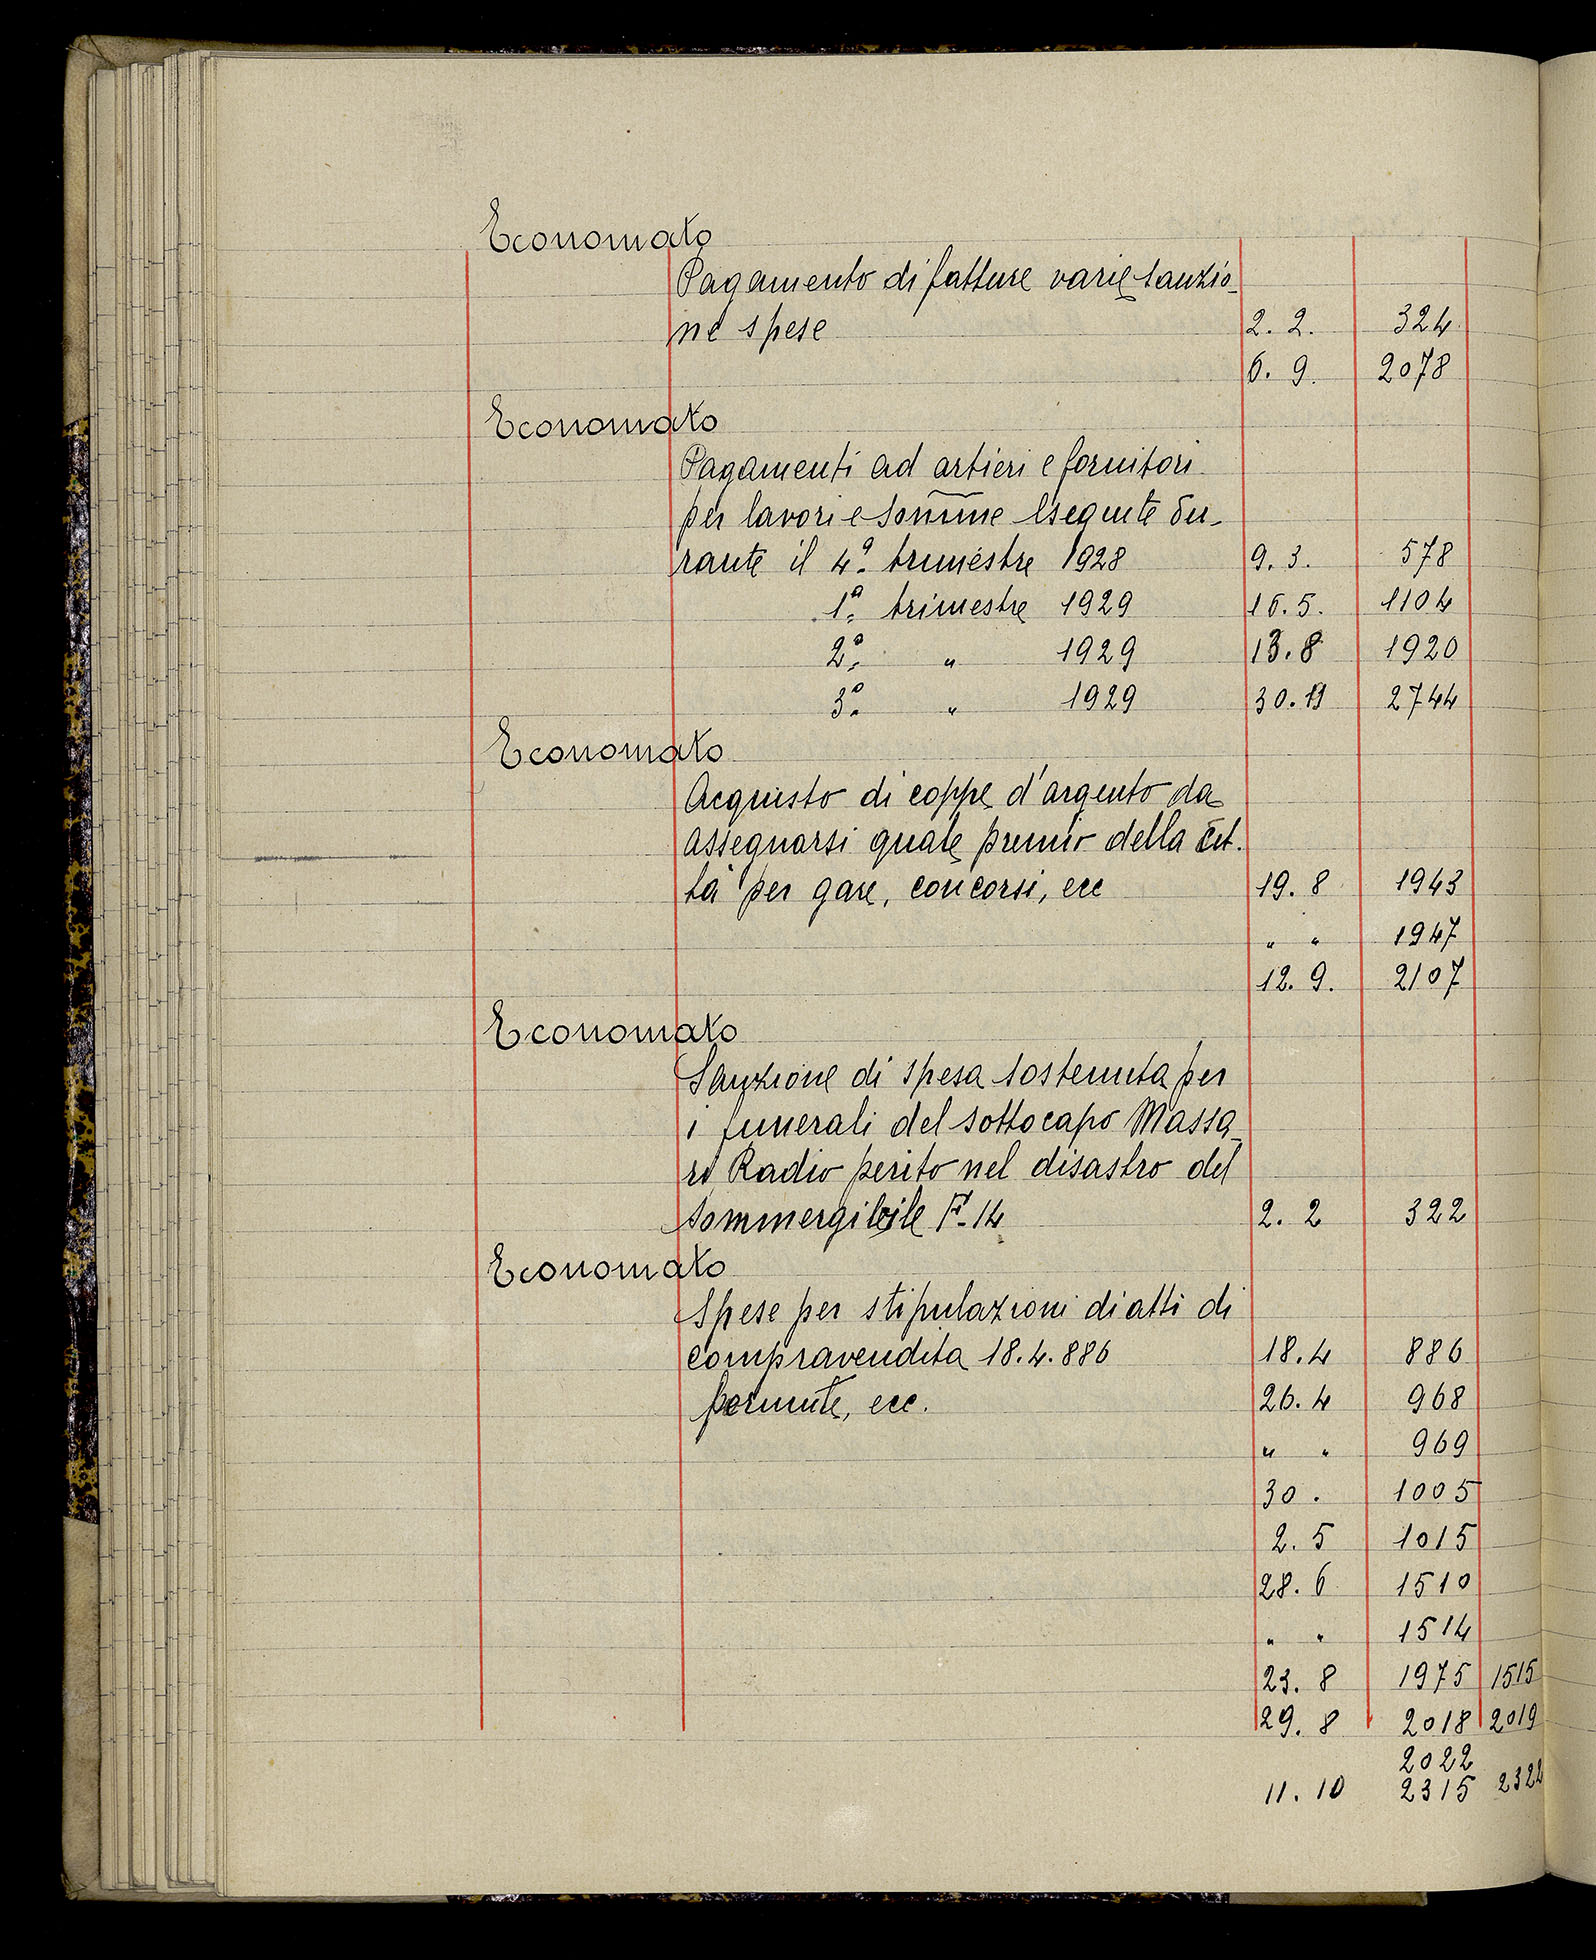 Economato
Pagamento di fatture varie sanzio-
ne spese 2. 2. 324
6. 9. 2078
Economato
Pagamenti ad artieri e fornitori
per lavori e somme eseguite du-
rante il 4º trimestre 1928 9. 3. 578
1º trimestre 1929 16. 5. 1104
2º " 1929 13. 8 1920
3º " 1929 30. 11 2744
Economato
Acquisto di coppe d'argento da
assegnarsi quale premio della cit-
tà per gare, concorsi, ecc 19. 8 1943
" " 1947
12. 9. 2107
Economato
Sanzione di spesa sostenuta per
i funerali del sottocapo Massa-
ri Radio perito nel disastro del
sommergibile F. 14 2. 2 322
Economato
Spese per stipulazioni di atti di
compravendita 18. 4. 886 18. 4 886
permute, ecc. 26. 4 968
" " 969
30 . 1005
2. 5 1015
28. 6 1510
" " 1514
23. 8 1975 1515
29. 8 2018 2019
2022
11. 10 2315 2322